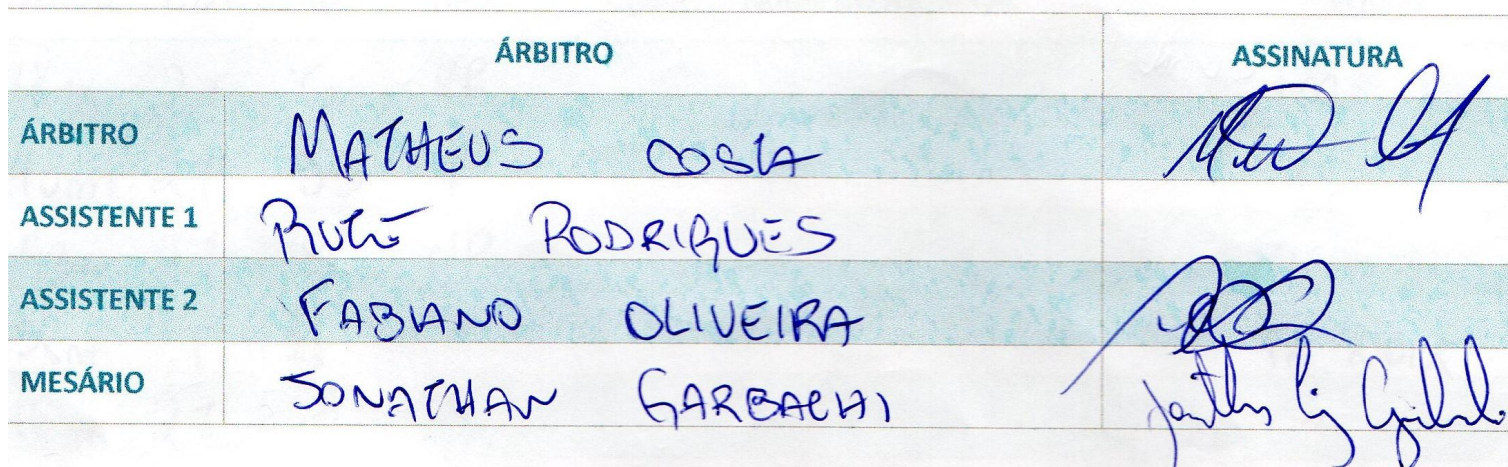 ÁRBITRO ASSINATURA
ÁRBITRO MATHEUS COSTA
ASSISTENTE 1 RUTE RODRIGUES
ASSISTENTE 2 FABIANO OLIVEIRA
MESÁRIO JONATHAN GARBACHI